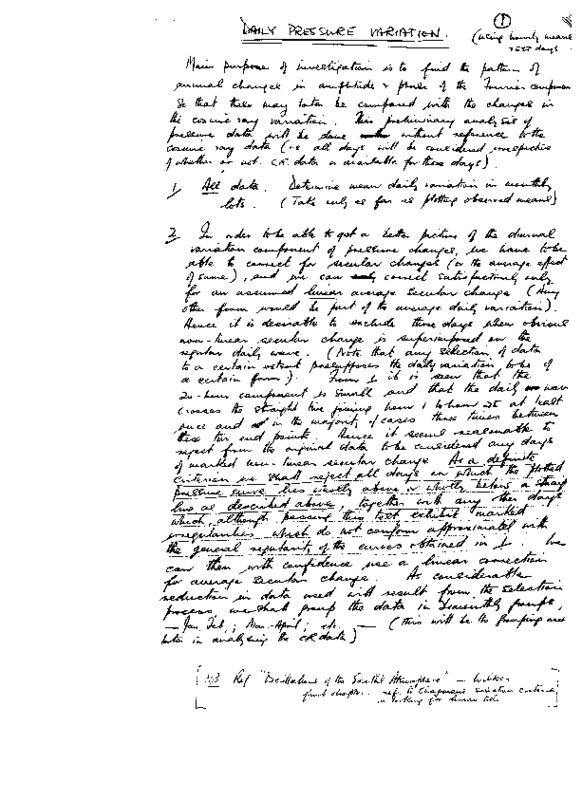 DAILY PRESSURE VARIATION.
①
(using hourly means
days
Main purpose of investigation is to find the pattern of
annual changes in amplitude & phase of the Fourier
so that these may later be compared with the changes in
the cosmic ray variation. This preliminary analysis of
pressure data will be done without reference to the
cosmic ray data (i.e. all days will be considered irrespective
of whether or not C.R. data is available for those days).
1. All data. Determine mean daily variation in monthly
lots. (Take only as far as plotting observed means)
2. In order to be able to get a better picture of the diurnal
variation component of pressure changes, we have to be
able to correct for secular changes (or the average effect
of same), and we can correct satisfactorily only
for an assumed linear average secular change (Any
other form would be part of the average daily variation).
Hence it is desirable to exclude those days when obvious
non-linear secular change is superimposed on the
regular daily wave. (Note that any selection of data
to a certain extent presupposes the daily variation to be of
a certain form). From 1. it is seen that the
24-hour component is small and that the daily wave
crosses the straight line joining hour 1 to hour 25 at least
once and in the majority of cases three times between
these two end points. Hence it seems reasonable to
reject from the original data to be considered any days
of marked non-linear secular change. As a definite
criterion we shall reject all days in which the plotted
pressure curve lies wholly above or wholly below a straight
line as described above, together with any other days
which, although passing this test exhibit marked
irregularities which do not conform approximately with
the general regularity of the curves obtained in 1. We
can then with confidence use a linear correction
for average secular change. As considerable
reduction in data used will result from the selection
process we shall group the data in 2 monthly groups,
— Jan. Feb.; Mar. April; etc. — (this will be the grouping used
later in analysing the CR data)
Ref "Oscillations of the Earth's Atmosphere" — Wilkes
first chapter. ref. to Chapman's selection criteria
in looking for lunar tide